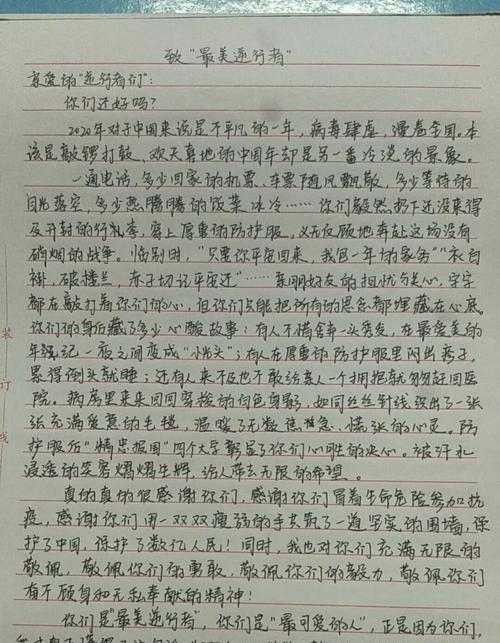 致“最美逆行者”
亲爱的“逆行者们”:
你们还好吗?
2020年对于中国来说是不平凡的一年，病毒肆虐，漫卷全国。本
该是敲锣打鼓、欢天喜地的中国年却是另一番冷淡的景象。
一通电话，多少回家的机票、车票随风飘散，多少等待的
目光落空，多少热腾腾的饭菜冰冷……你们毅然扔下还没来得
及开封的行礼箱，穿上厚重的防护服，义无反顾地奔赴这场没有
硝烟的战争。临别时，“只要你平安回来，我包一年的家务”“衣白
褂，破楼兰，赤子切记平安还”……亲朋好友的担忧与关心，字字
都在敲打着你们的心，但你们只能把所有的思念都埋藏在心底。
你们的身后藏了多少心酸故事：有人不惜舍弃一头秀发，在最爱美的
年纪一夜之间变成“小光头”；有人在厚重的防护服里闷出疹子，
累得倒头就睡；还有人来不及也不敢给亲人一个拥抱就匆匆赶回医
院。病房里来来回回穿梭的白色身影，如同丝丝针线织出了一张
张充满爱意的毛毯，温暖了无数焦急、慌张的心灵。防
护服后“精忠报国”四个大字彰显了你们心中的决心。被汗水
浸透的笑容熠熠生辉，给人带去无限的希望。
真的真的很感谢你们，感谢你们冒着生命危险参加抗
疫，感谢你们用一双双瘦弱的手共筑了一道坚实的围墙，保
护了中国，保护了数亿人民！同时，我也对你们充满无限的
敬佩，敬佩你们的勇敢，敬佩你们的毅力，敬佩你们
有不顾自身和无私奉献的精神！
你们是“最美逆行者”，你们是“最可爱的人”，正是因为你们，
装
订
线